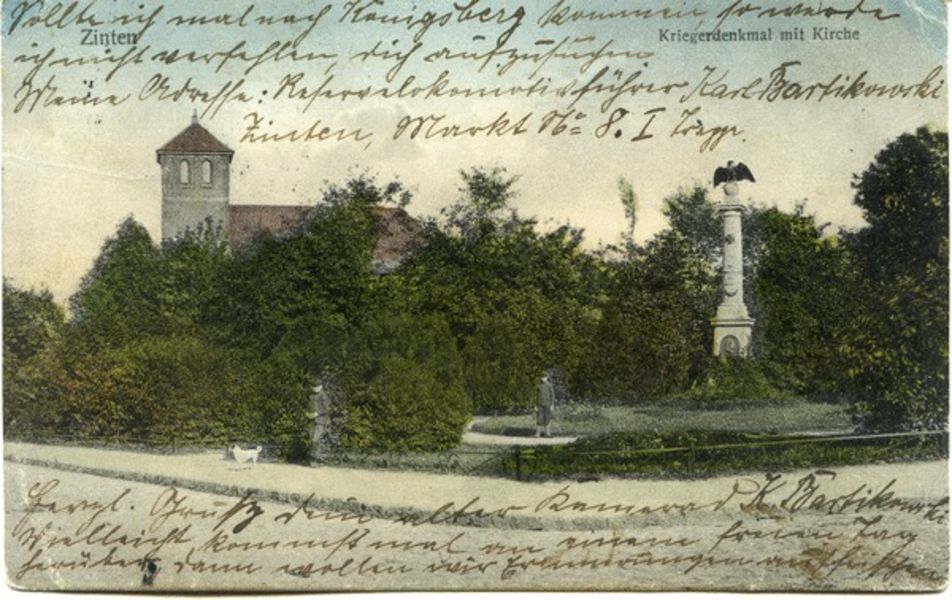 Sollte ich mal nach Königsberg kommen, so werde
Zinten
Kriegerdenkmal mit Kirche
ich nicht verfehlen, dich aufzusuchen
Meine Adresse: Reservelokomotivführer Karl Bartikowski
Zinten, Markt No 8. I
Herzl. Gruß dein alter Kamerad K. Bartikowski
Vielleicht kommst mal an einem freien Tag
herüber, dann wollen wir Erinnerungen auffrischen